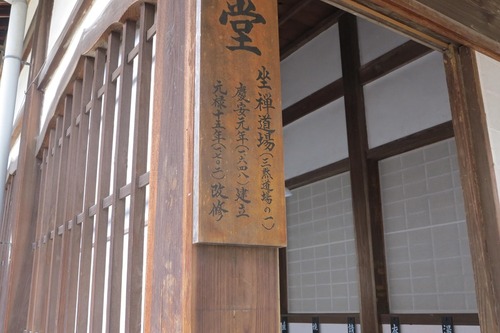 堂
坐禅道場(三黙道場の一)
慶安元年(一六四八)建立
元禄十五年(一七〇二)改修